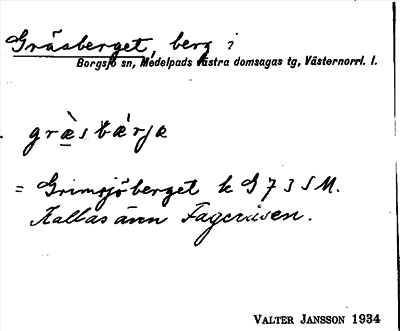 Gräsberget, berg i
Borgsjö sn, Medelpads västra domsagas tg, Västernorrl. l.
græ̀sbæ̀rjæ
= Grimsjöberget k G 7 3 S M.
Kallas även Fageråsen.
VALTER JANSSON 1934